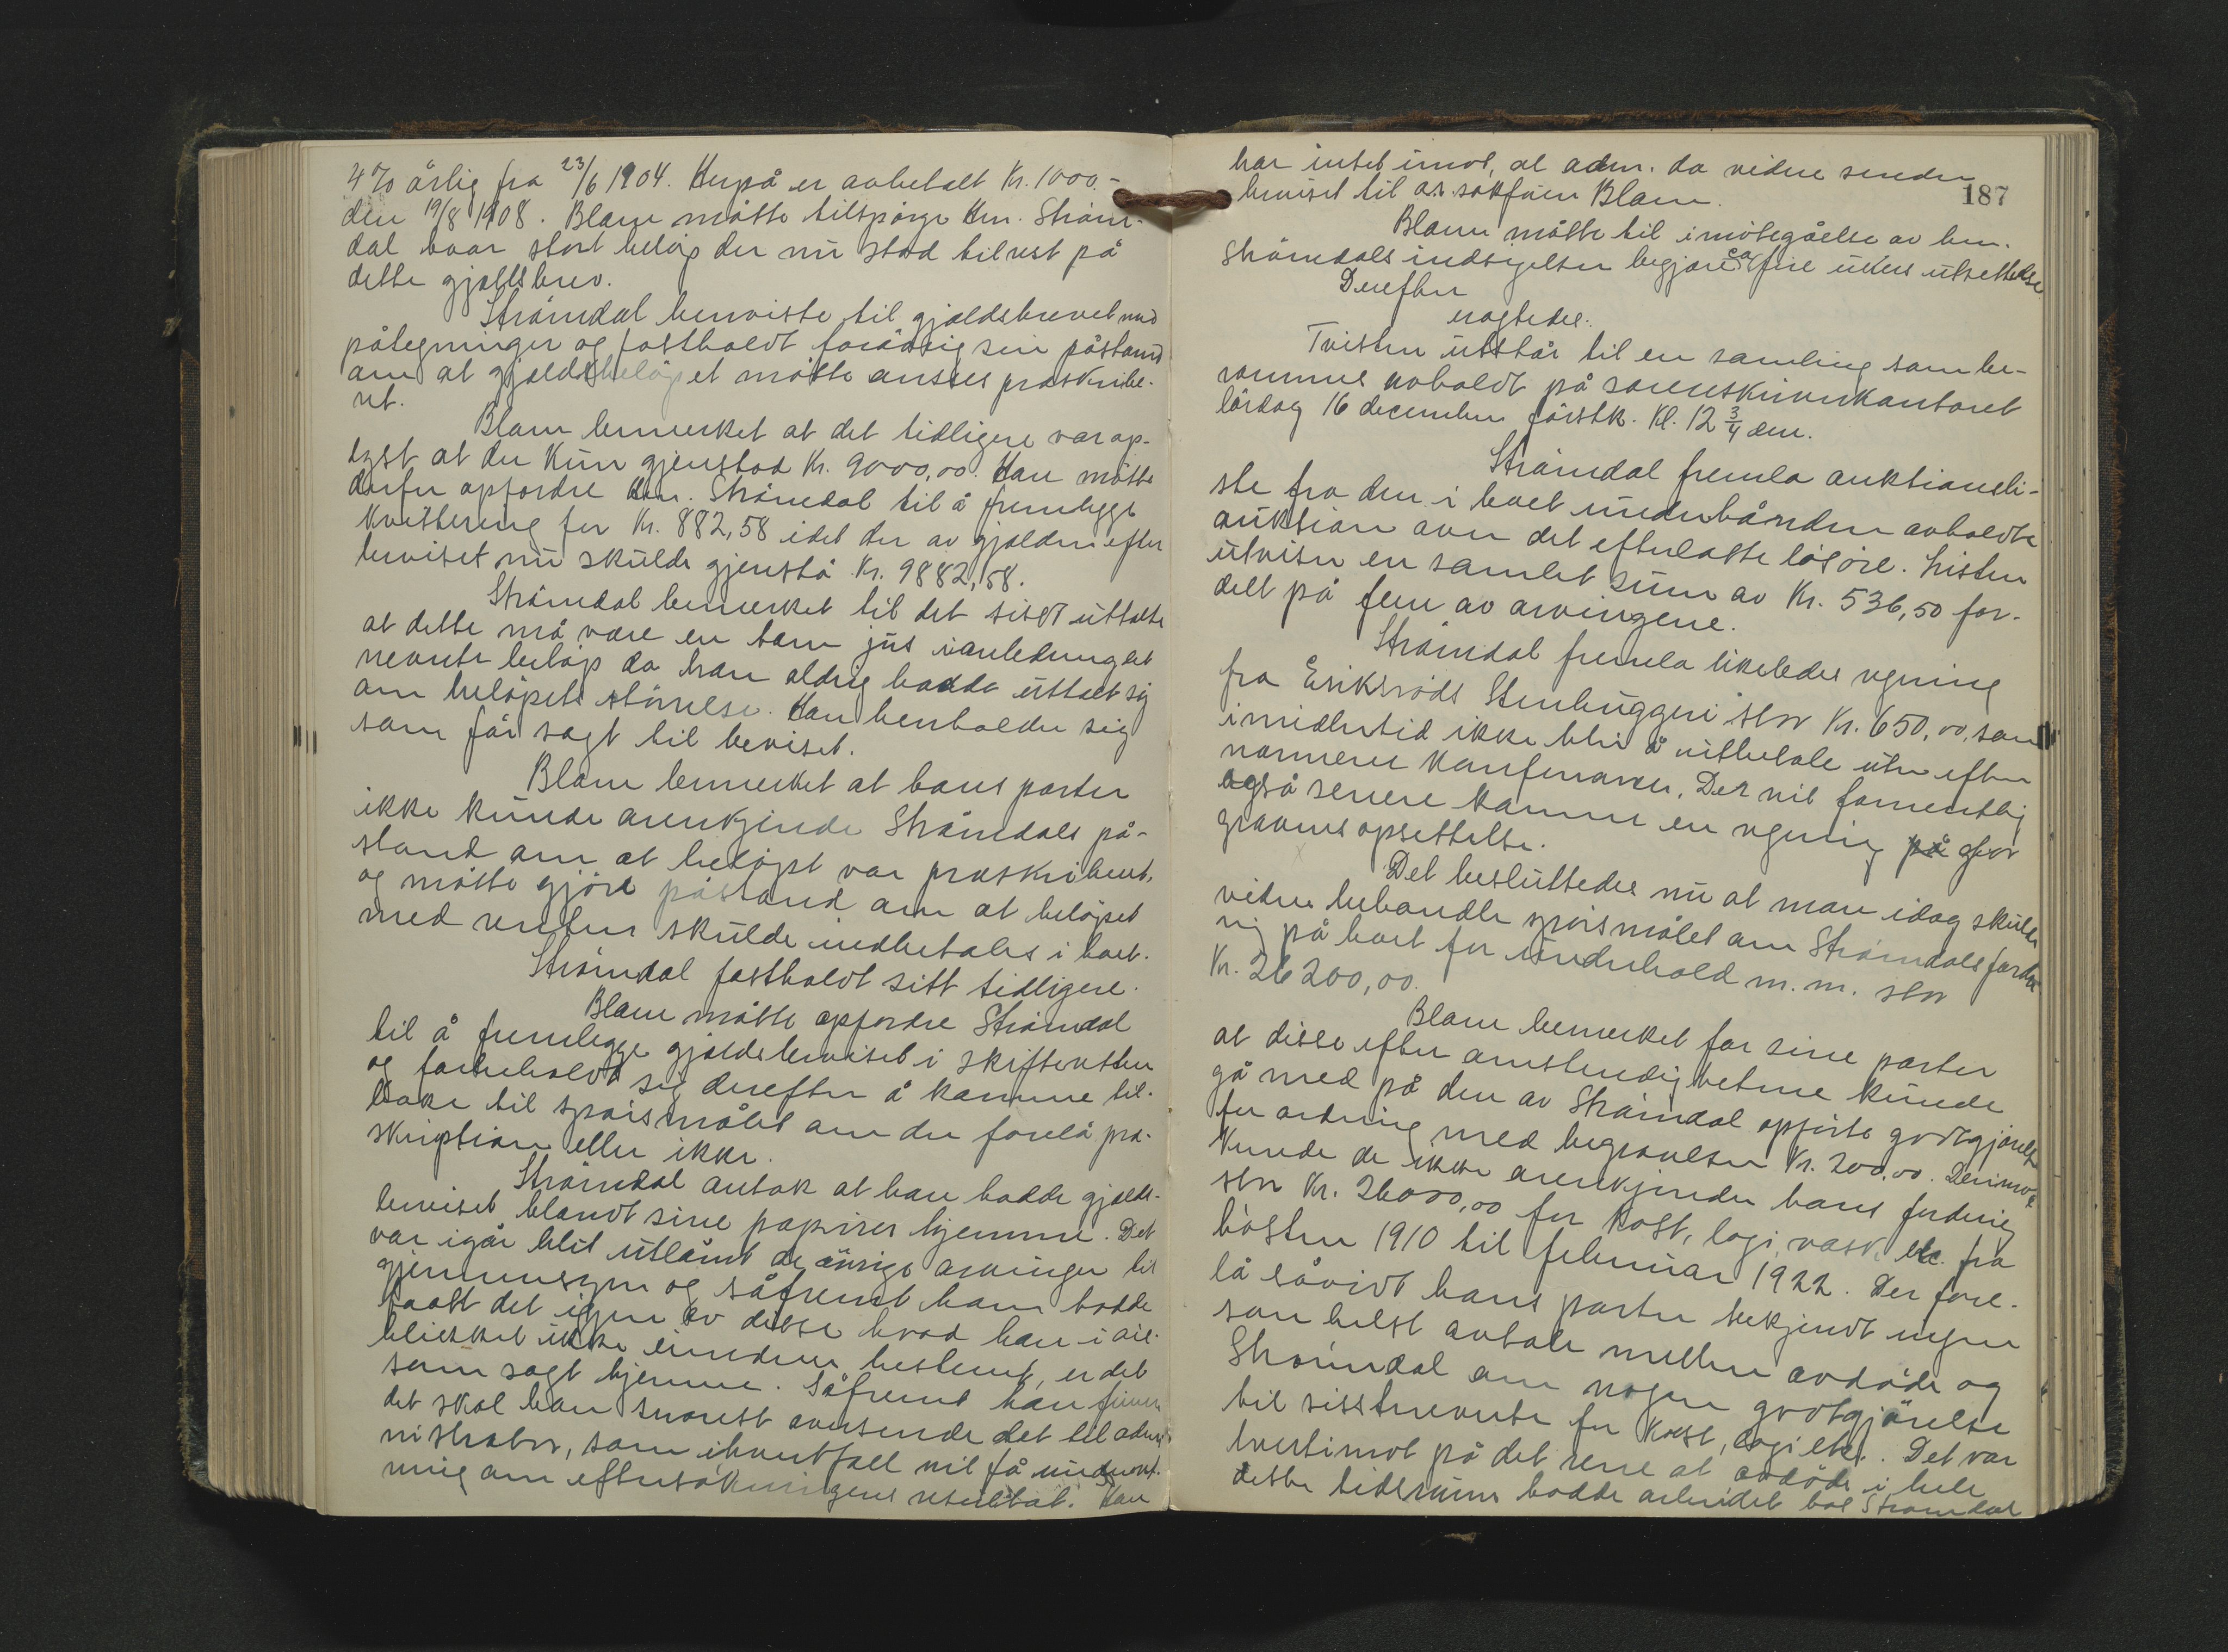 4% årlig fra 23/6 1904. Herpå er avbetalt Kr. 1000.-
den 19/8 1908. Blom måtte tilspørge Hm. Strøm-
dal hvor stort beløp der nu stod tilrest på
dette gjældsbrev.
Strømdal henviste til gjældsbrevet med
påtegninger og fastholdt forøvrig sin påstand
om at gjældsbeløpet måtte ansees præskribe-
ret.
Blom bemerket at det tidligere var op-
lyst at der kun gjenstod Kr. 9000,00. Han måtte
derfor opfordre Hm. Strømdal til å fremlegge
kvittering for Kr. 882,58 idet der av gjælden efter
beviset nu skulde gjenstå Kr. 9882,58.
Strømdal bemerket til det sist uttalte
at dette må være en
nevnte beløp da han aldrig hadde uttalt sig
om beløpets størrelse. Han henholder sig
som før sagt til beviset.
Blom bemerket at hans parter
ikke kunde anerkjende Strømdals på-
stand om at beløpet var præskribert,
og måtte gjøre påstand om at beløpet
med renter skulde indbetales i boet.
Strømdal fastholdt sitt tidligere.
Blom måtte opfordre Strømdal
til å fremlegge gjældsbeviset i skifteretten
og forbeholdt sig derefter å komme til-
bake til spørsmålet om der forelå præ-
skription eller ikke.
Strømdal antok at han hadde gjælds-
beviset blandt sine papirer hjemme. Det
var igår blit utlånt de øvrige arvinger til
gjennemsyn og såfremt han hadde
faatt det igjen av disse hvad han i øie-
blikket ikke erindrer bestemt, er det
som sagt hjemme. Såfremt han finner
det skal han snarest oversende det til admi-
nistrator, som ihvertfall vil få underret-
ning om eftersøkningens resultat. Han
har intet imot, at adm. da videre sender
beviset til o.r.sakfører Blom.
187
Blom måtte til imøtegåelse av hm.
Strømdals indsigelser begjære ca fire ukers utsettelse.
Derefter
vagtedes:
Tvisten utstår til en samling som be-
rammes avholdt på sorenskriverkontoret
lørdag 16 december førstk. Kl. 12 3/4 em.
Strømdal fremla auktionsli-
ste fra den i boet underhånden avholdte
auktion over det efterlatte løsøre. Listen
utviser en samlet sum av Kr. 536,50 for-
delt på fem av arvingene.
Strømdal fremla likeledes regning
fra Eriksrøds Stenhuggeri stor Kr. 650,00, som
imidlertid ikke blir å utbetale uten efter
nærmere konferanse. Det vil formentlig
også senere komme en regning på for
gravens opsettelse.
Det besluttedes nu at man idag skulde
videre behandle spørsmålet om Strømdals fordr-
ing på boet for underhold m.m. stor
Kr. 26200,00.
Blom bemerket for sine parter
at disse efter omstendighetene kunde
gå med på den av Strømdal opførte godtgjørelse
for ordning med begravelsen Kr. 200,00. Derimot
kunde de ikke anerkjende hans fordring
stor Kr. 26000,00 for kost, logi, vask etc. fra
høsten 1910 til februar 1922. Der fore-
lå såvidt hans parter bekjendt ingen
som helst avtale mellem avdøde og
Strømdal om nogen godtgjørelse
til sisstnevnte for kost, logi etc. Det var
tvertimot på det rene at avdøde i hele
dette tidsrum hadde arbeidet hos Strømdal